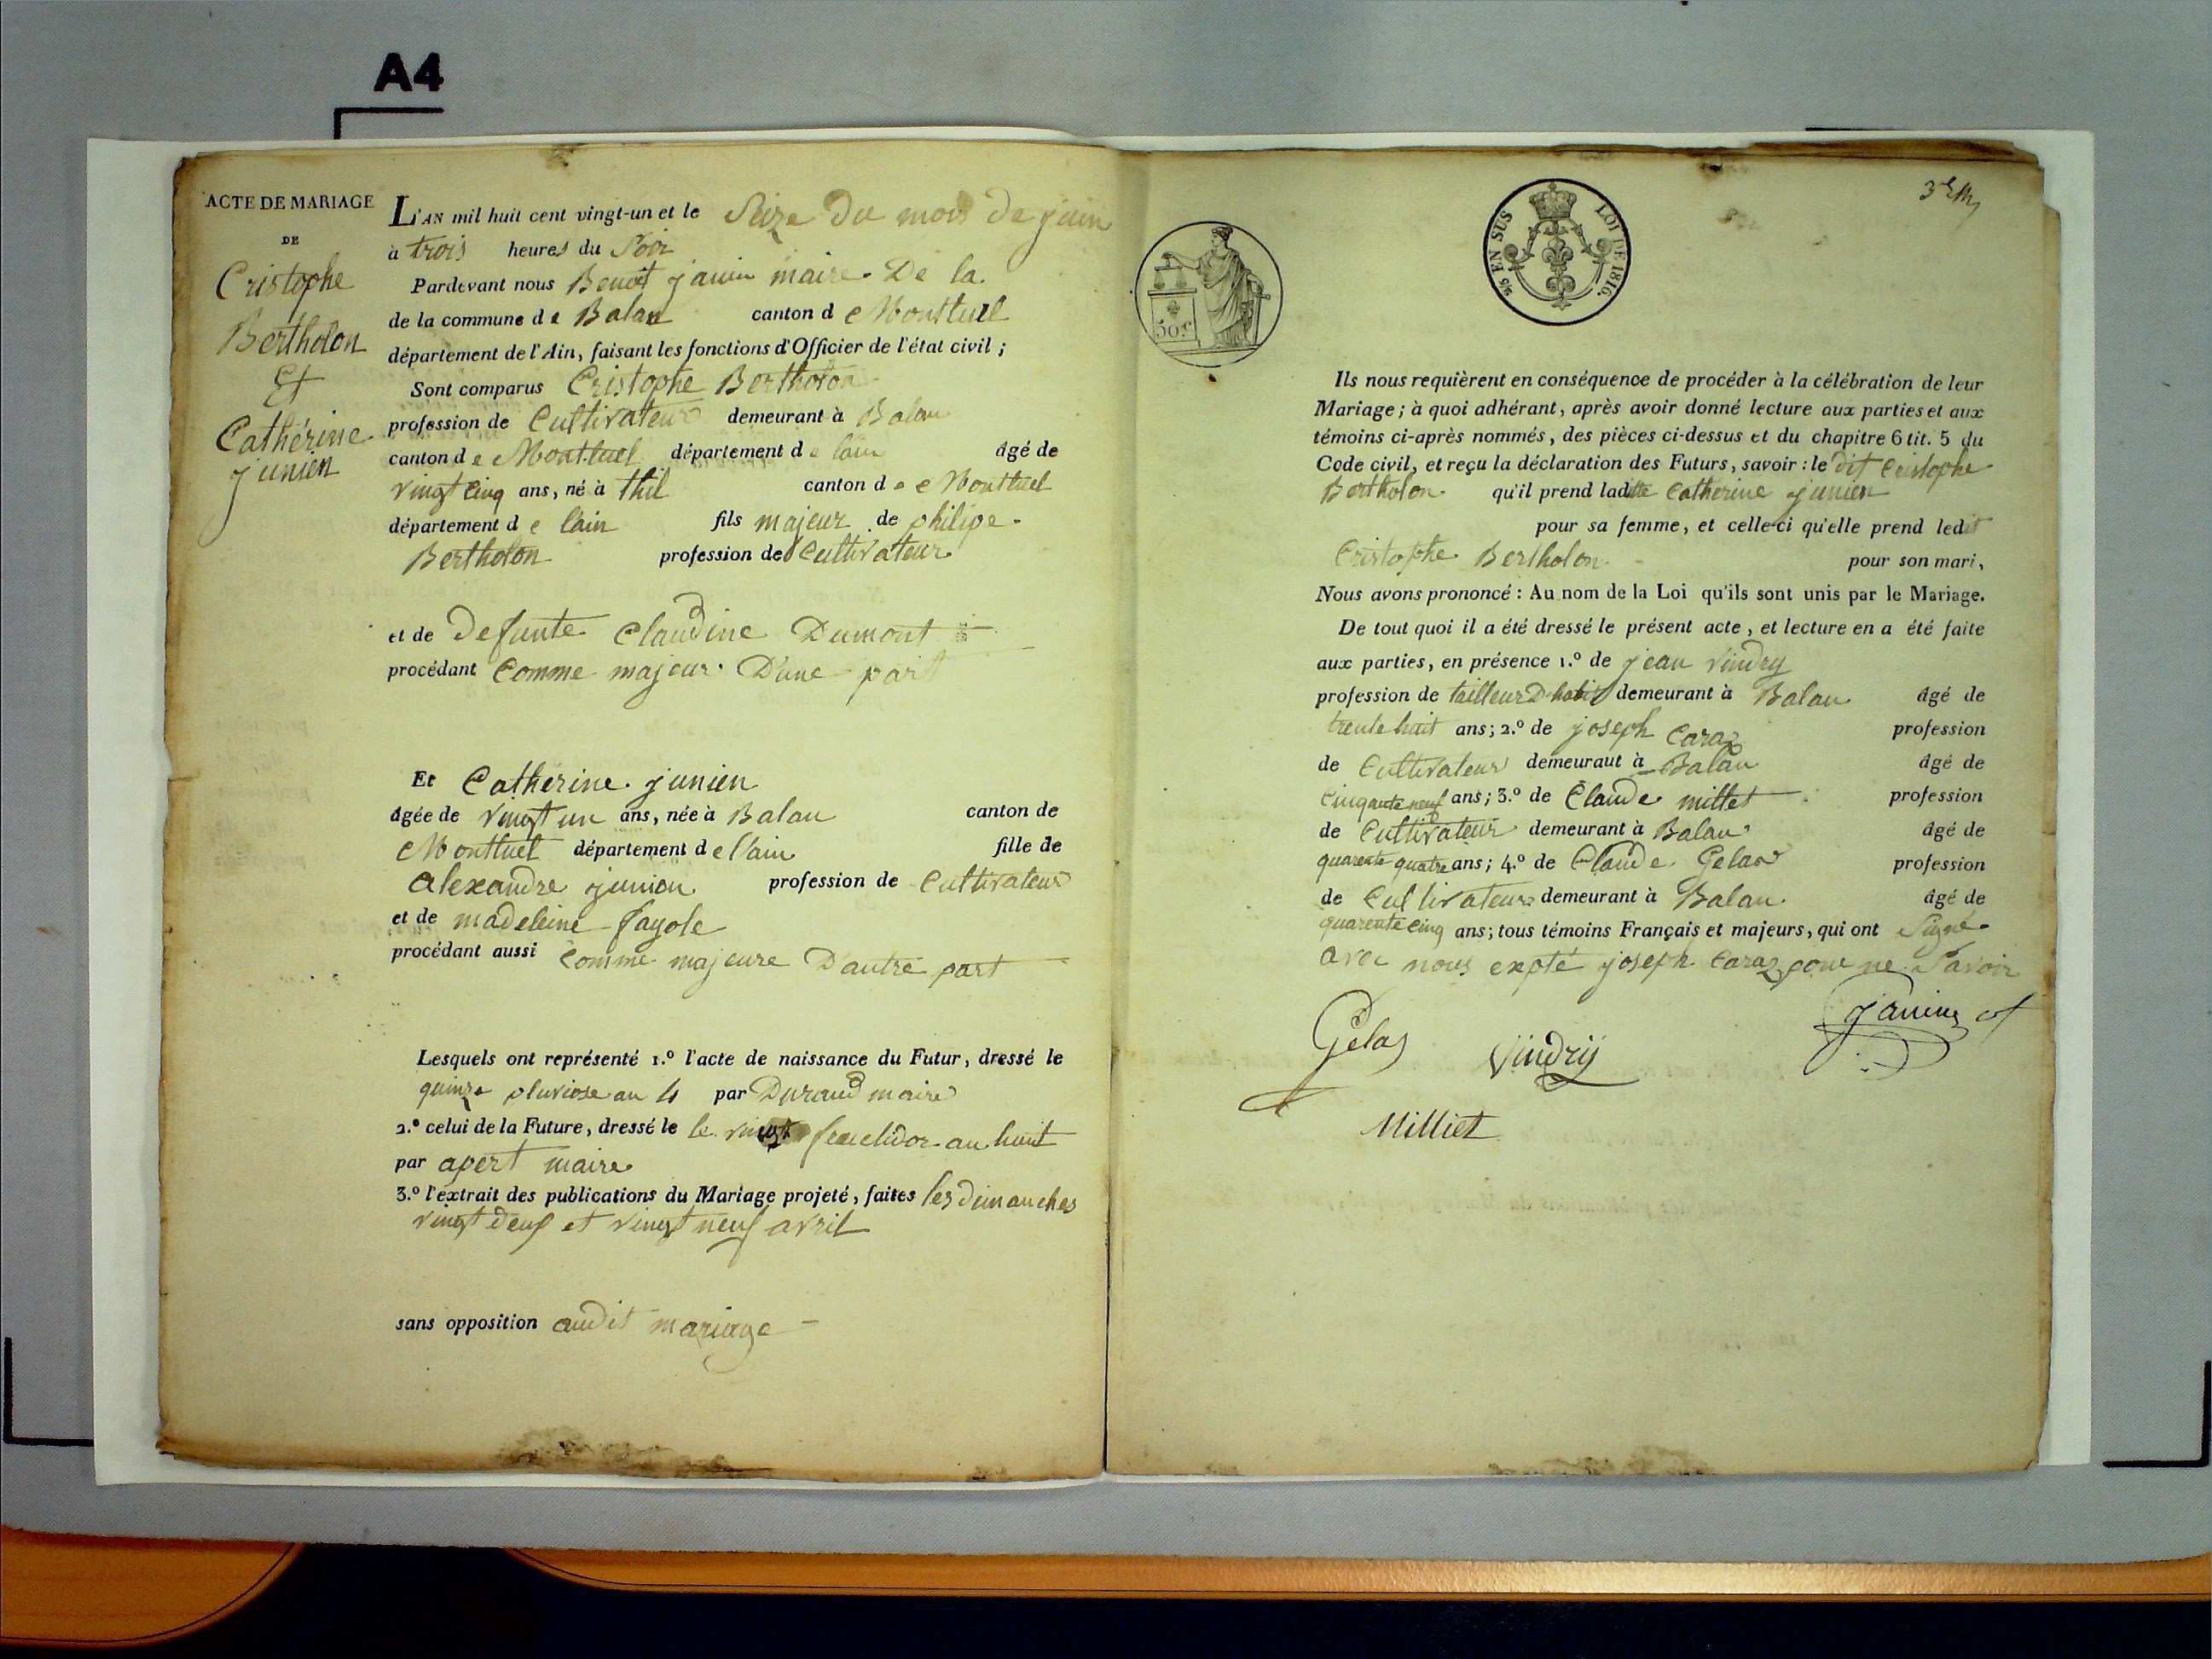 A4
ACTE DE MARIAGE
DE
Cristophe
Bertholon
Et
Cathérine
junien
L'AN mil huit cent vingt-un et le Seize du mois de juin
à trois heures du Soir
Pardevant nous Benoit janin maire De la
de la commune de Balan canton de Montluel
département de l'Ain, faisant les fonctions d'Officier de l'état civil ;
Sont comparus Cristophe Bertholon
profession de Cultivateur demeurant à Balan
canton de Montluel département de lain âgé de
vingt cinq ans, né à thil canton de Montluel
département de l'ain fils majeur de philipe
Bertholon profession de Cultivateur
et de Defunte Claudine Dumont
procédant Comme majeur D'une part
Et Catherine junien
âgée de vingt un ans, née à Balan canton de
Montluel département de l'ain fille de
alexandre junien profession de Cultivateur
et de madeleine fayole
procédant aussi Comme majeure D'autre part
Lesquels ont représenté 1.º l'acte de naissance du Futur, dressé le
quinze pluviose an 4 par Durand maire
2.º celui de la Future, dressé le le vingt fruclidor an huit
par apert maire
3.º l'extrait des publications du Mariage projeté, faites les dimanches
vingt deux et vingt neuf avril
sans opposition audit mariage
50 c
5/5 EN SUS LOI DE 1816.
Ils nous requièrent en conséquence de procéder à la célébration de leur
Mariage; à quoi adhérant, après avoir donné lecture aux parties et aux
témoins ci-après nommés, des pièces ci-dessus et du chapitre 6 tit. 5 du
Code civil, et reçu la déclaration des Futurs, savoir : le dit Cristophe
Bertholon qu'il prend laditte Catherine junien
pour sa femme, et celle-ci qu'elle prend ledit
Cristophe Bertholon pour son mari,
Nous avons prononcé : Au nom de la Loi qu'ils sont unis par le Mariage.
De tout quoi il a été dressé le présent acte, et lecture en a été faite
aux parties, en présence 1.º de jean vindry
profession de tailleur D'habit demeurant à Balan âgé de
trente huit ans; 2.º de joseph Caraz profession
de Cultivateur demeuraut à Balan âgé de
Cinqante neuf ans; 3.º de Claude millet profession
de Cultivateur demeurant à Balan âgé de
quarente quatre ans; 4.º de Claude Gelas profession
de Cultivateur demeurant à Balan âgé de
quarente cinq ans; tous témoins Français et majeurs, qui ont Signé
avec nous expté joseph Caraz pour ne Savoir
Gelas Vindry janin
Milliet